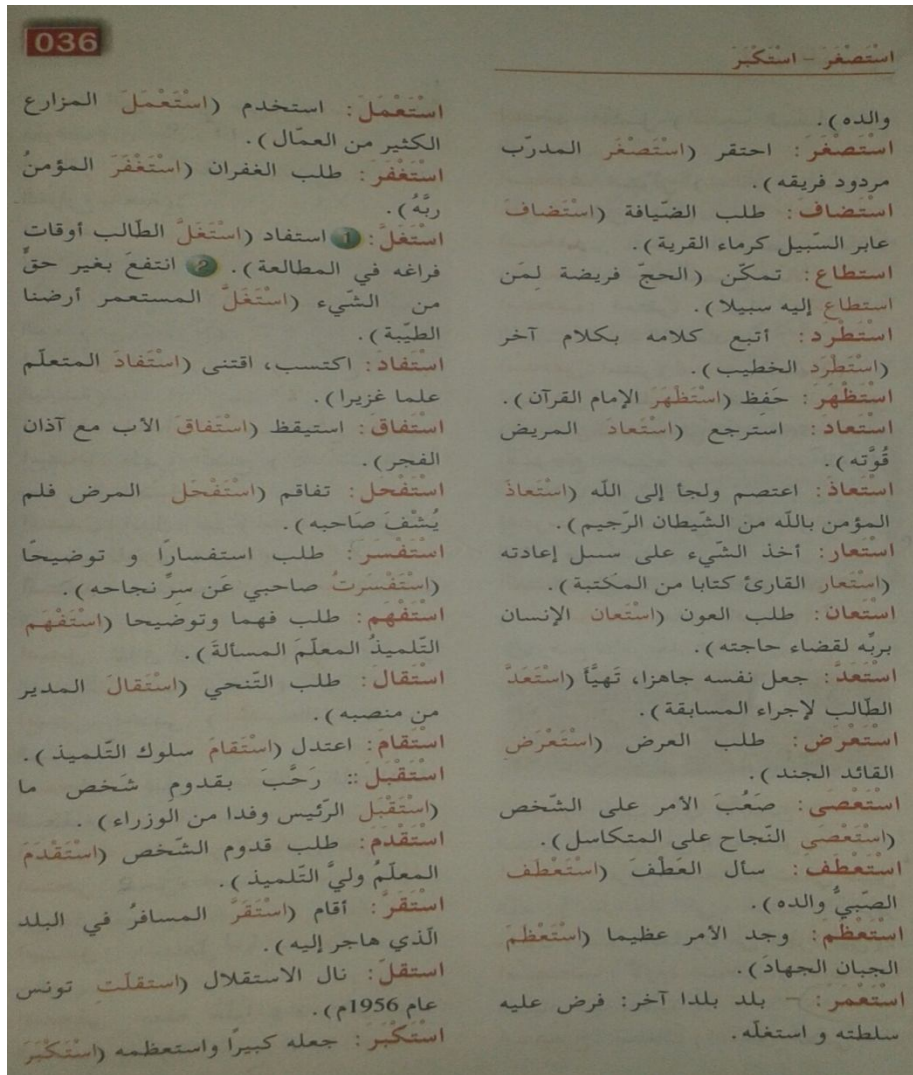 036
اسْتَصْغَرَ - اسْتَكْبَرَ
والده).
اسْتَصْغَرَ: احتقر (اسْتَصْغَر المدرّب
مردود فريقه).
اسْتَضافَ: طلب الضّيافة (اسْتَضافَ
عابر السّبيل كرماء القرية).
استطاع: تمكّن (الحجّ فريضة لِمَن
استطاع إليه سبيلا).
اسْتَطْرد: أتبع كلامه بكلام آخر
(اسْتَطْرَد الخطيب).
اسْتَظْهَر: حَفِظ (اسْتَظْهَرَ الإمام القرآن).
اسْتَعاد: استرجع (اسْتَعادَ المريض
قُوَّته).
اسْتَعاذَ: اعتصم ولجأ إلى اللّه (اسْتَعاذَ
المؤمن باللّه من الشّيطان الرّجيم).
اسْتَعار: أخذ الشّيء على سبيل إعادته
(اسْتَعار القارئ كتابا من المكتبة).
اسْتَعان: طلب العون (اسْتَعان الإنسان
بربّه لقضاء حاجته).
اسْتَعَدَّ: جعل نفسه جاهزا، تَهيَّأ (اسْتَعَدَّ
الطّالب لإجراء المسابقة).
اسْتَعْرَض: طلب العرض (اسْتَعْرَض
القائد الجند).
اسْتَعْصَى: صَعُبَ الأمر على الشّخص
(اسْتَعْصَى النّجاح على المتكاسل).
اسْتَعْطَف: سأل العَطْفَ (اسْتَعْطَف
الصّبيُّ والده).
اسْتَعْظَم: وجد الأمر عظيما (اسْتَعْظَمَ
الجبان الجهادَ).
اسْتَعْمَر: - بلد بلدا آخر: فرض عليه
سلطته و استغلّه.
اسْتَعْمَلَ: استخدم (اسْتَعْمَلَ المزارع
الكثير من العمّال).
اسْتَغْفَرَ: طلب الغفران (اسْتَغْفَرَ المؤمنُ
ربَّهُ).
اسْتَغَلَّ: 1 استفاد (اسْتَغَلَّ الطّالب أوقات
فراغه في المطالعة). 2 انتفعَ بغير حقٍّ
من الشّيء (اسْتَغَلَّ المستعمر أرضنا
الطيّبة).
اسْتَفادَ: اكتسب، اقتنى (اسْتَفادَ المتعلّم
علما غزيرا).
اسْتَفاقَ: استيقظ (اسْتَفاقَ الأب مع آذان
الفجر).
اسْتَفْحَل: تفاقم (اسْتَفْحَل المرض فلم
يُشْفَ صَاحبه).
اسْتَفْسَر: طلب استفسارًا و توضيحًا
(اسْتَفْسَرتُ صاحبي عَن سِرِّ نجاحه).
اسْتَفْهَم: طلب فهما وتوضيحا (اسْتَفْهَم
التّلميذُ المعلّمَ المسألةَ).
اسْتَقال: طلب التّنحي (اسْتَقالَ المدير
من منصبه).
اسْتَقامَ: اعتدل (اسْتَقامَ سلوك التّلميذ).
اسْتَقْبَلَ:: رَحَّبَ بقدومِ شَخص ما
(اسْتَقْبَل الرّئيس وفدا من الوزراء).
اسْتَقْدَمَ: طلب قدوم الشّخص (اسْتَقْدَمَ
المعلّمُ وليَّ التّلميذ).
اسْتَقَرَّ: أقام (اسْتَقَرَّ المسافرُ في البلد
الّذي هاجر إليه).
استقلّ: نال الاستقلال (استقلّت تونس
عام 1956م).
اسْتَكْبَرَ: جعله كبيرًا واستعظمه (اسْتَكْبَرَ